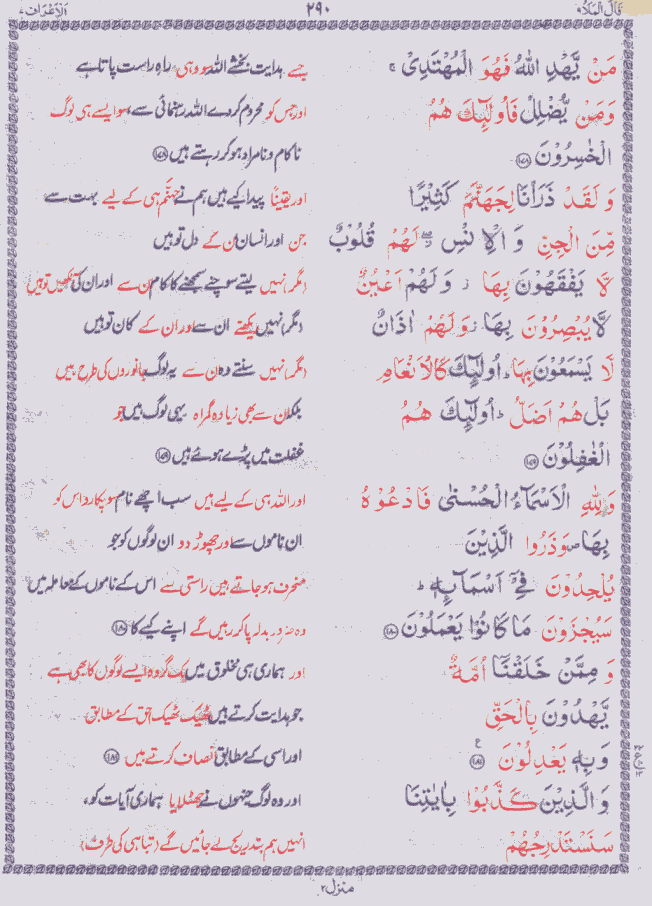 قَالَ الْمَلَاُ ٩ ٢٩٠ اَلْاَعْرَاف ٧
مَنْ يَّهْدِ اللّٰهُ فَهُوَ الْمُهْتَدِىْ ۚ جسے ہدایت بخشے اللہ سو وہی راہِ راست پاتا ہے
وَمَنْ يُّضْلِلْ فَاُولٰٓئِكَ هُمُ اور جس کو محروم کردے اللہ رہنمائی سے، سو ایسے ہی لوگ
الْخٰسِرُوْنَ ۝١٧٨ ناکام و نامراد ہو کر رہتے ہیں ۝١٧٨
وَ لَقَدْ ذَرَاْنَا لِجَهَنَّمَ كَثِيْرًا اور یقیناً پیدا کیے ہیں ہم نے جہنّم ہی کے لیے بہت سے
مِّنَ الْجِنِّ وَ الْاِنْسِ ۖ لَهُمْ قُلُوْبٌ جن اور انسان ان کے دل تو ہیں
لَّا يَفْقَهُوْنَ بِهَا ؗ وَ لَهُمْ اَعْيُنٌ (مگر) نہیں لیتے سوچنے سمجھنے کا کام ان سے اور ان کی آنکھیں تو ہیں
لَّا يُبْصِرُوْنَ بِهَا ؗ وَلَهُمْ اٰذَانٌ (مگر) نہیں دیکھتے ان سے اور ان کے کان تو ہیں
لَّا يَسْمَعُوْنَ بِهَا ؕ اُولٰٓئِكَ كَالْاَنْعَامِ (مگر) نہیں سنتے وہ ان سے یہ لوگ جانوروں کی طرح ہیں
بَلْ هُمْ اَضَلُّ ؕ اُولٰٓئِكَ هُمُ بلکہ ان سے بھی زیادہ گمراہ یہی لوگ ہیں جو
الْغٰفِلُوْنَ ۝١٧٩ غفلت میں پڑے ہوئے ہیں ۝١٧٩
وَ لِلّٰهِ الْاَسْمَآءُ الْحُسْنٰى فَادْعُوْهُ اور اللہ ہی کے لیے ہیں سب اچھے نام سو پکارو اس کو
بِهَا ۪ وَذَرُوا الَّذِيْنَ ان ناموں سے اور چھوڑ دو ان لوگوں کو جو
يُلْحِدُوْنَ فِىْۤ اَسْمَآئِهٖ ؕ منحرف ہو جاتے ہیں راستی سے اس کے ناموں کے معاملہ میں
سَيُجْزَوْنَ مَا كَانُوْا يَعْمَلُوْنَ ۝١٨٠ وہ ضرور بدلہ پا کر رہیں گے اپنے کیے کا ۝١٨٠
وَ مِمَّنْ خَلَقْنَاۤ اُمَّةٌ اور ہماری ہی مخلوق میں ایک گروہ ایسے لوگوں کا بھی ہے
يَّهْدُوْنَ بِالْحَقِّ جو ہدایت کرتے ہیں ٹھیک ٹھیک حق کے مطابق
وَبِهٖ يَعْدِلُوْنَ ۝١٨١ ع اور اسی کے مطابق انصاف کرتے ہیں ۝١٨١
وَ الَّذِيْنَ كَذَّبُوْا بِاٰيٰتِنَا اور وہ لوگ جنہوں نے جھٹلایا ہماری آیات کو،
سَنَسْتَدْرِجُهُمْ انہیں ہم بتدریج لے جائیں گے (تباہی کی طرف)
منزل ٢